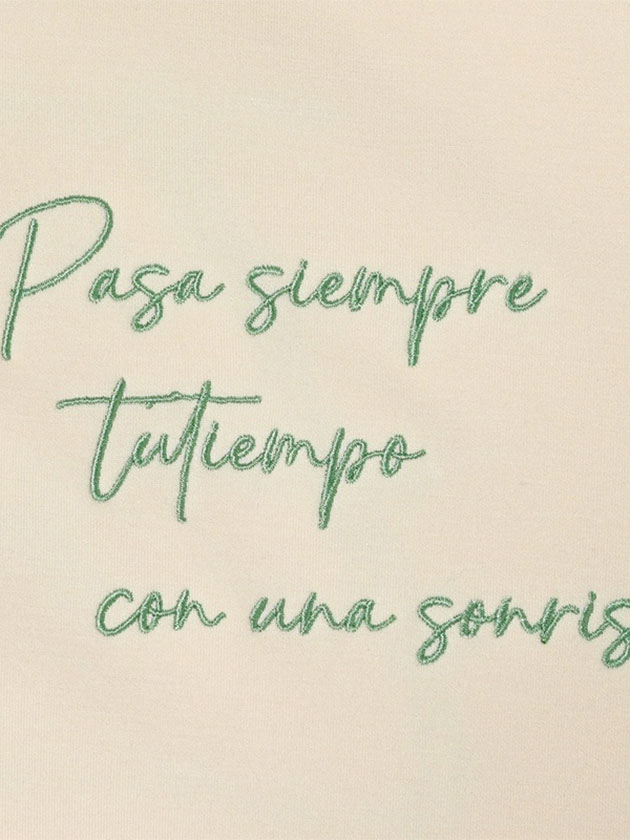 Pasa siempre
tu tiempo
con una sonris